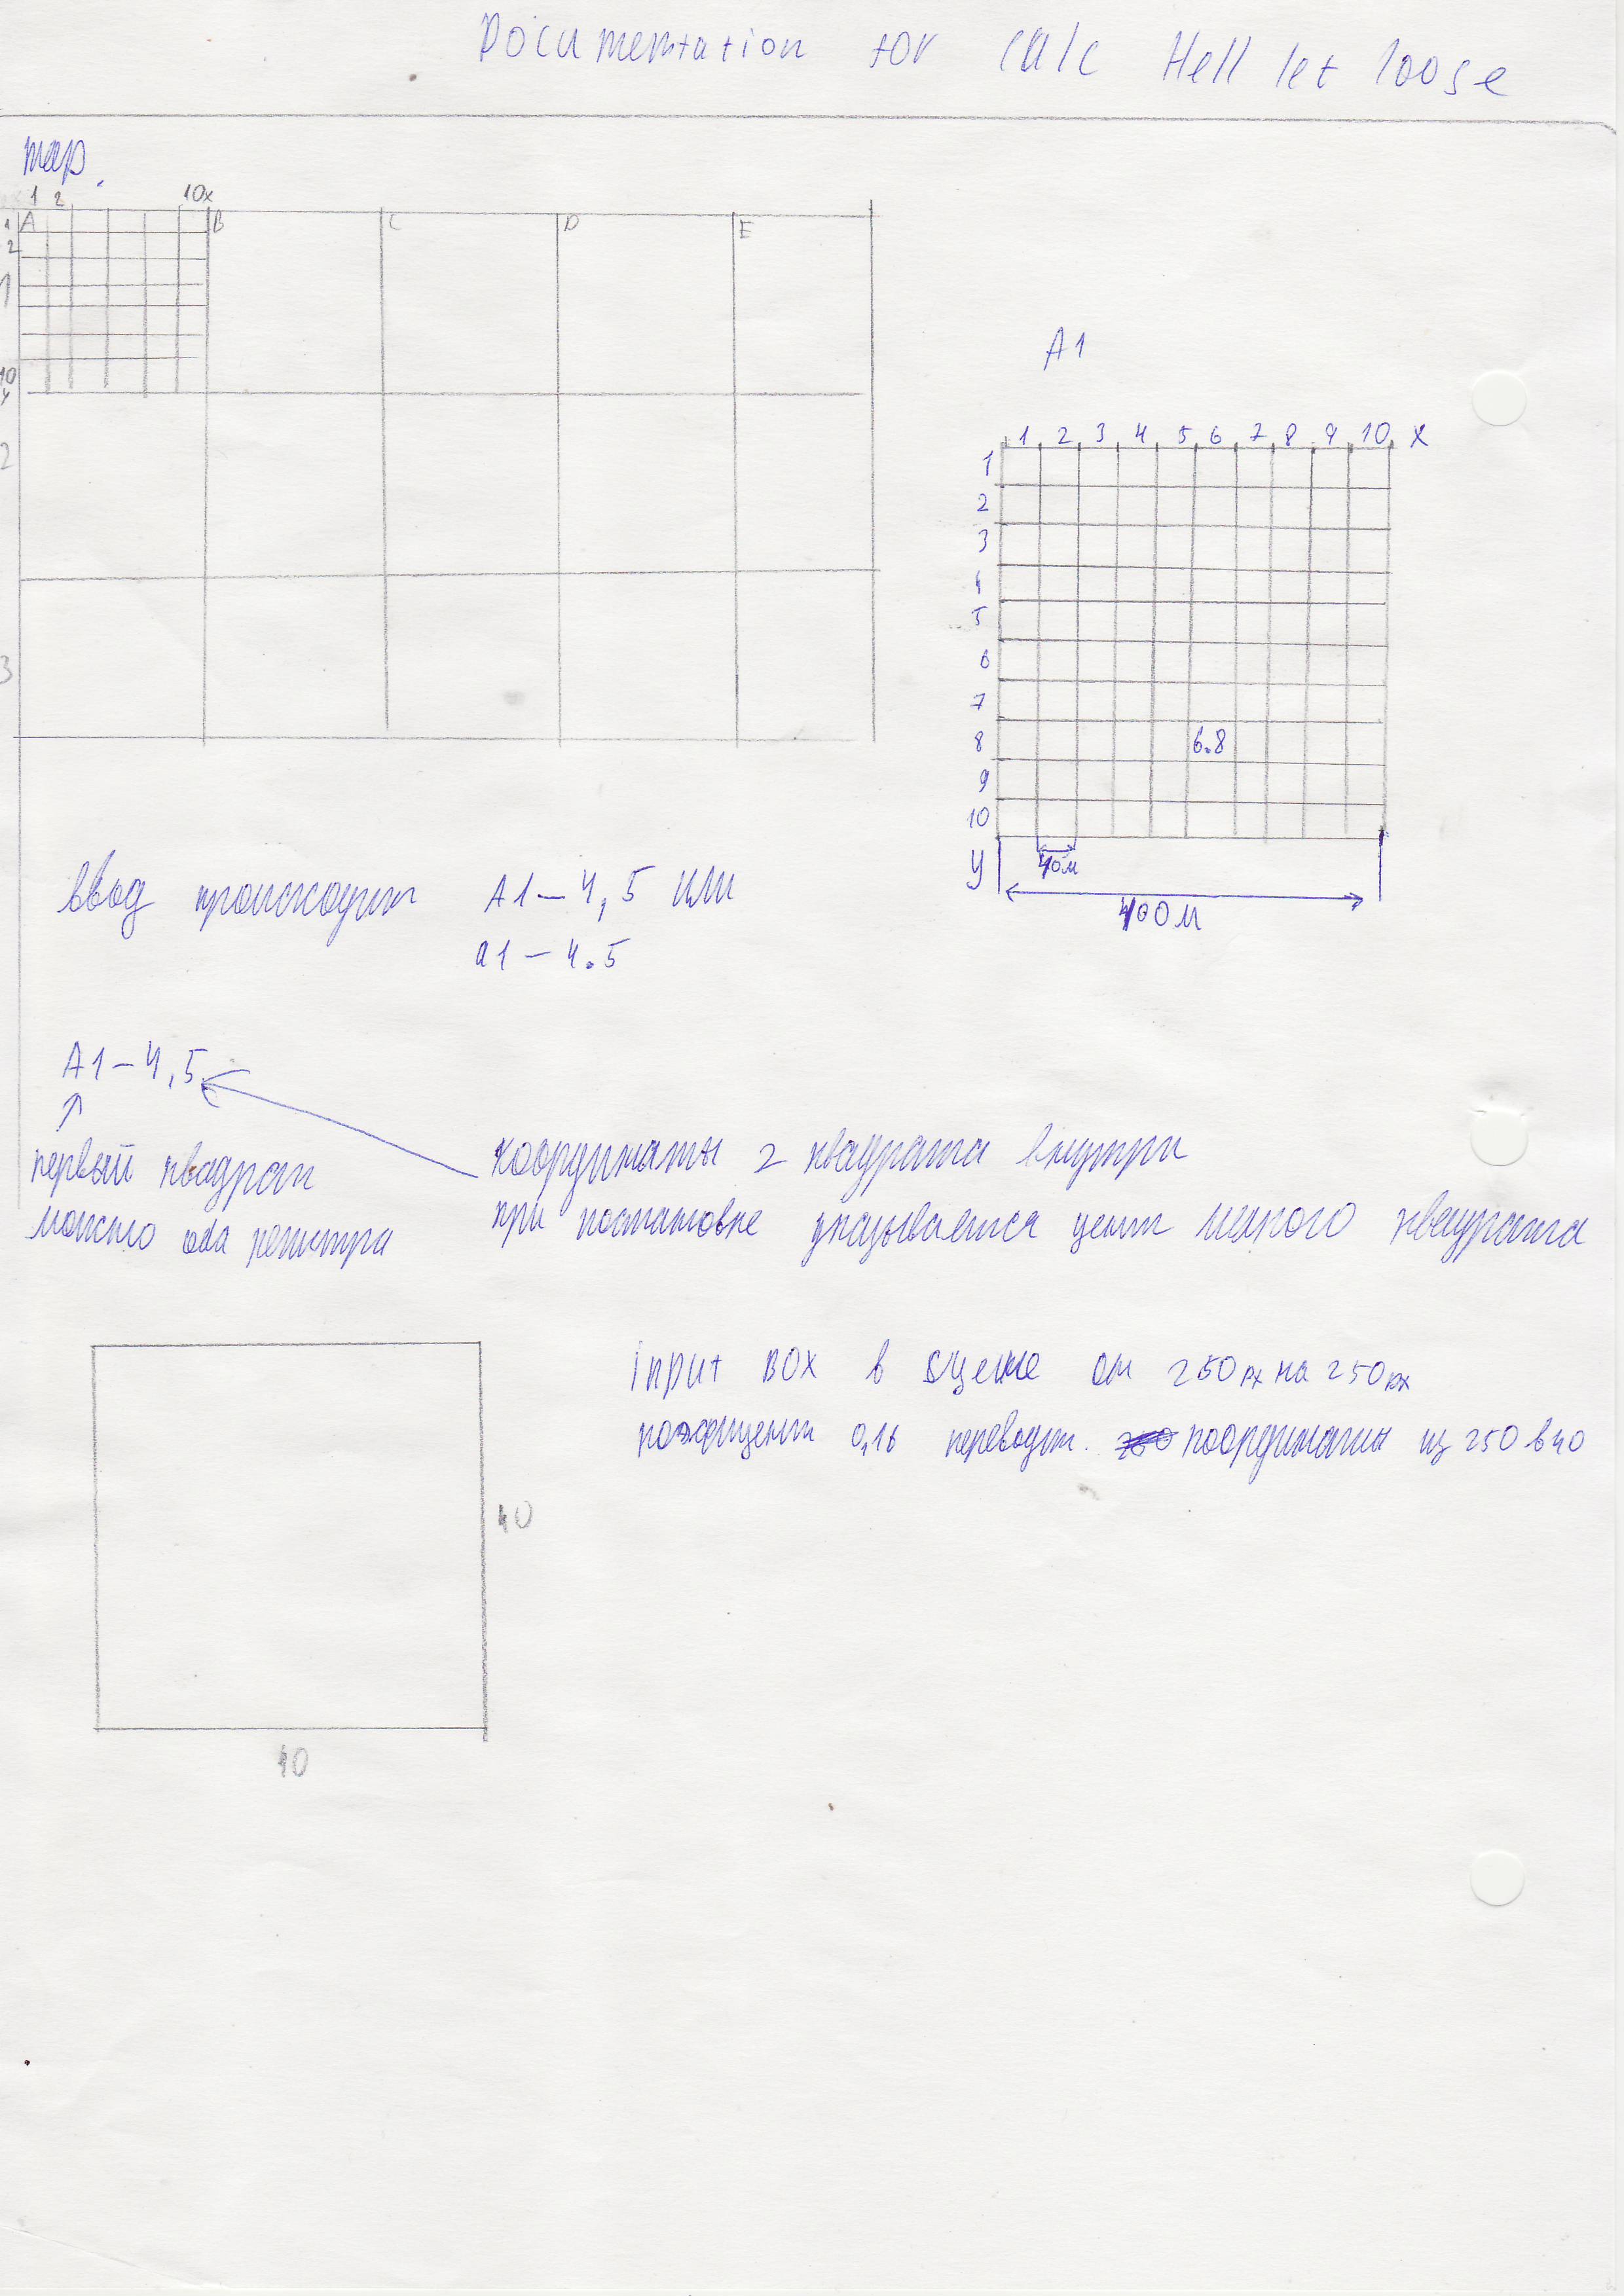 Documentation for calc Hell let loose
map.
1 2 10x
A B C D E
1
2
1
10
y
2
3
A1
1 2 3 4 5 6 7 8 9 10 x
1
2
3
4
5
6
7
8 6.8
9
10
y 40м
400м
ввод происходит A1-4,5 или
a1-4.5
A1-4,5
первый квадрат
можно оба регистра
координаты 2 квадрата внутри
при постановке указывается центр мелкого квадрата
input BOX в сцене от 250px на 250px
коэфициент 0,16 переводит. координаты из 250 в 40
40
40